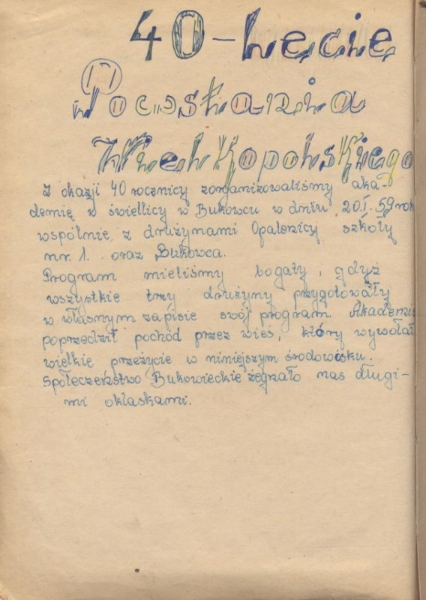 40-lecie
Powstania
Wielkopolskiego
Z okazji 40 rocznicy zorganizowaliśmy aka
demię w świetlicy w Bukowcu w dniu 20.I.59 rok
wspólnie z drużynami Opalenicy szkoły
nr. 1. oraz Bukowca.
Program mieliśmy bogaty, gdyż
wszystkie trzy drużyny przygotowały
w własnym zapisie swój program. Akademię
poprzedził pochód przez wieś, który wywołał
wielkie przeżycie w niniejszym środowisku.
Społeczeństwo Bukowieckie żegnało nas długi-
mi oklaskami.